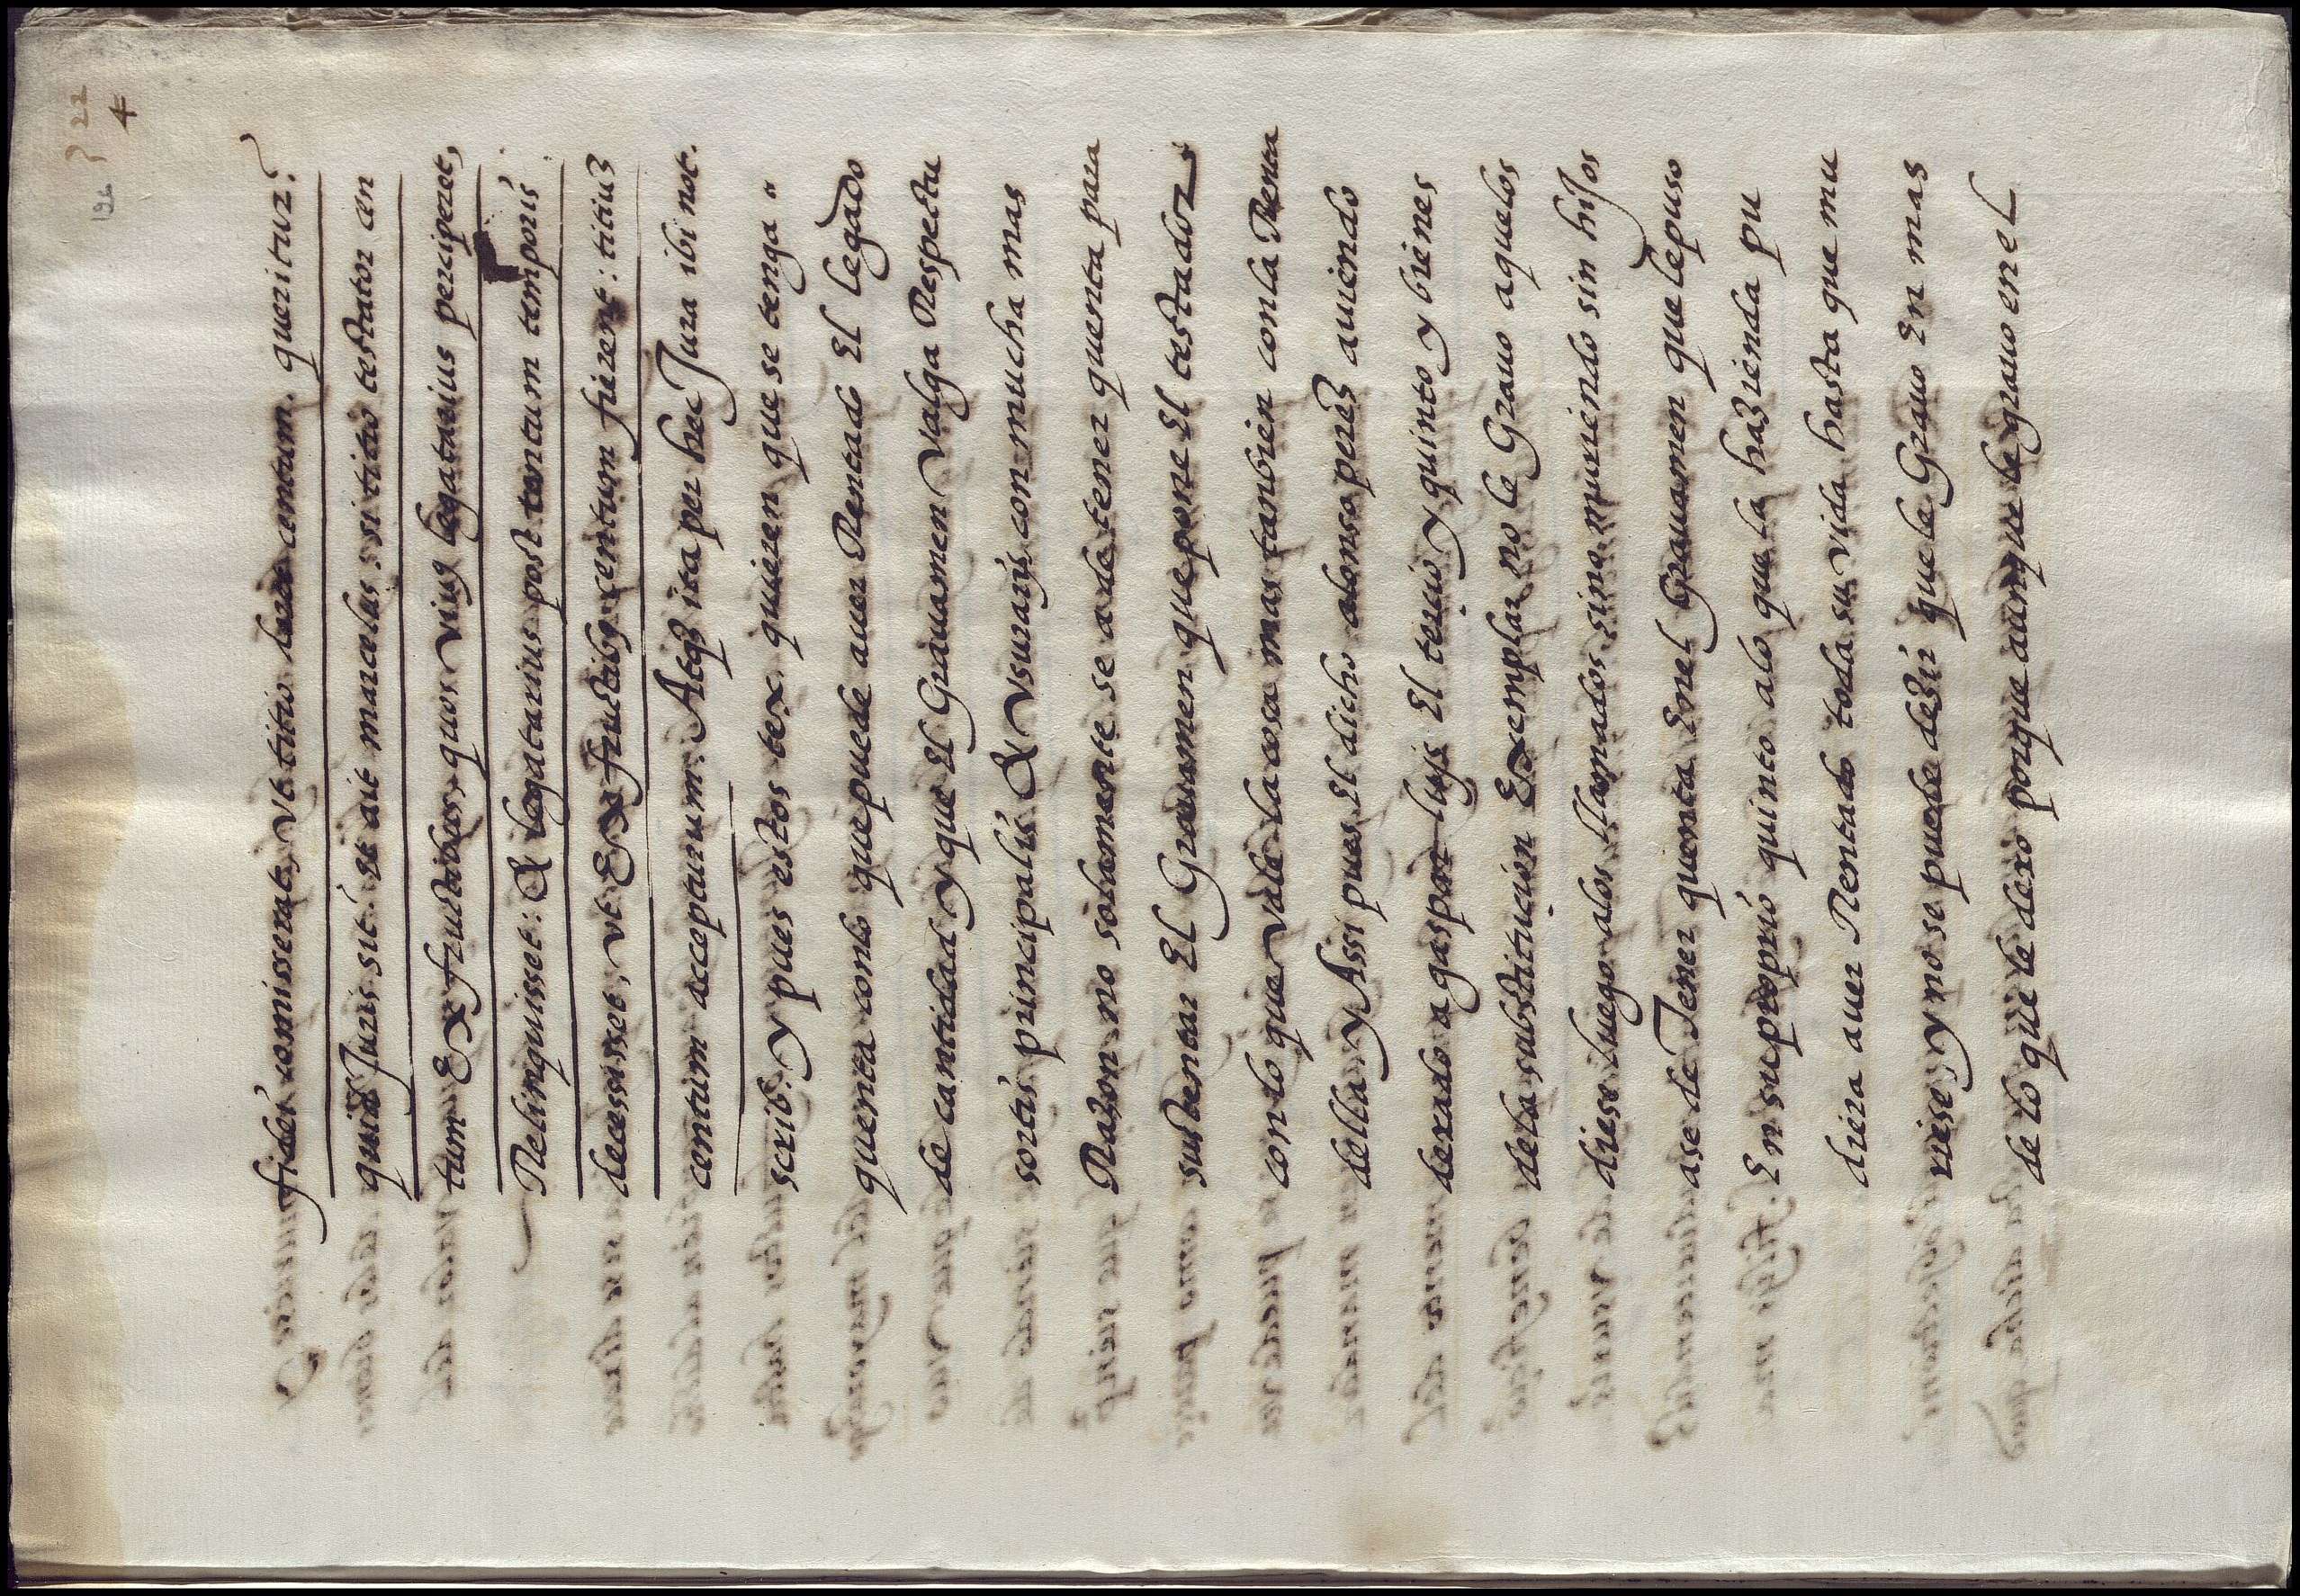 22
4
196
fidei comisserat, Vt titio daret centum. queritur?
quid Juris sit. et ait marcelus: si titio testator cen
tum Ex fructibus, quos viuꝰ legatarius perciperet,
Relinquisset: & legatarius post tantum temporis
decessisset, vt Ex fructibꝰ centum fierent: titiuꝫ
centum accepturum. Atqꝫ ita per hec Jura ibi not.
scrib. y pues estos tex. quieren que se tenga
quenta con lo que puede auer Rentado El legado
de cantidad y que El Grauamen Valga Respectu
sortis principalis & Vsurarij con mucha mas
Razon no solamente se a de tener quenta para
sustentar El Grauamen que pone El testador
con lo que Vale la cosa mas tanbien con la Renta
della y Assi pues El dicho alonso perez auiendo
dexado a gaspar luys El tercio y quinto y bienes
de la substitucion Exemplar no le Grauo aquelos
diese luego a los llamados sino muriendo sin hijos
ase de Tener quenta En el Grauamen que le puso
En su proprio quinto a lo que la hazienda pu
diera auer Rentado toda su vida hasta que mu
riese y no se puede dezir que le Grauo En mas
de lo que le dexo porque aunque le grauo en el